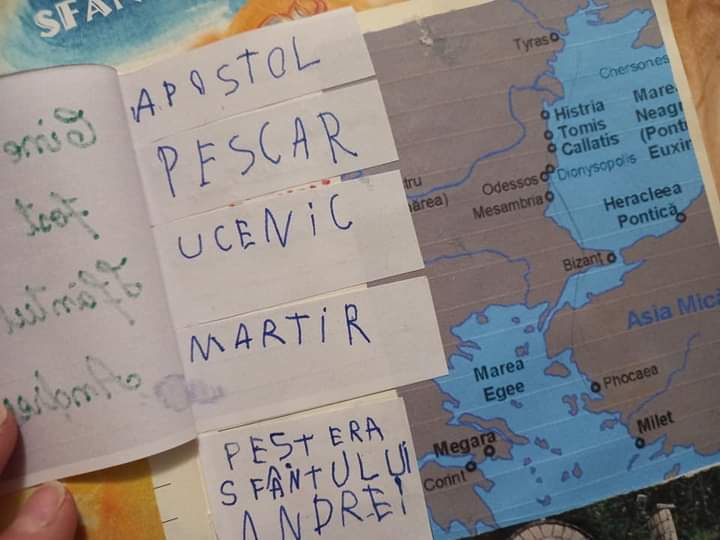 SFÂN
APOSTOL
PESCAR
UCENIC
MARTIR
PEȘTERA
SFÂNTULUI
ANDREI
Cine
fost
Sfântul
Andrei
Tyras
Chersones
Histria
Tomis
Callatis
Mare
Neagr
(Pont
Euxin
Dionysopolis
Odessos
Mesambria
tru
ărea)
Heracleea
Pontică
Bizanț
Asia Mică
Marea
Egee
Phocaea
Milet
Megara
Corint